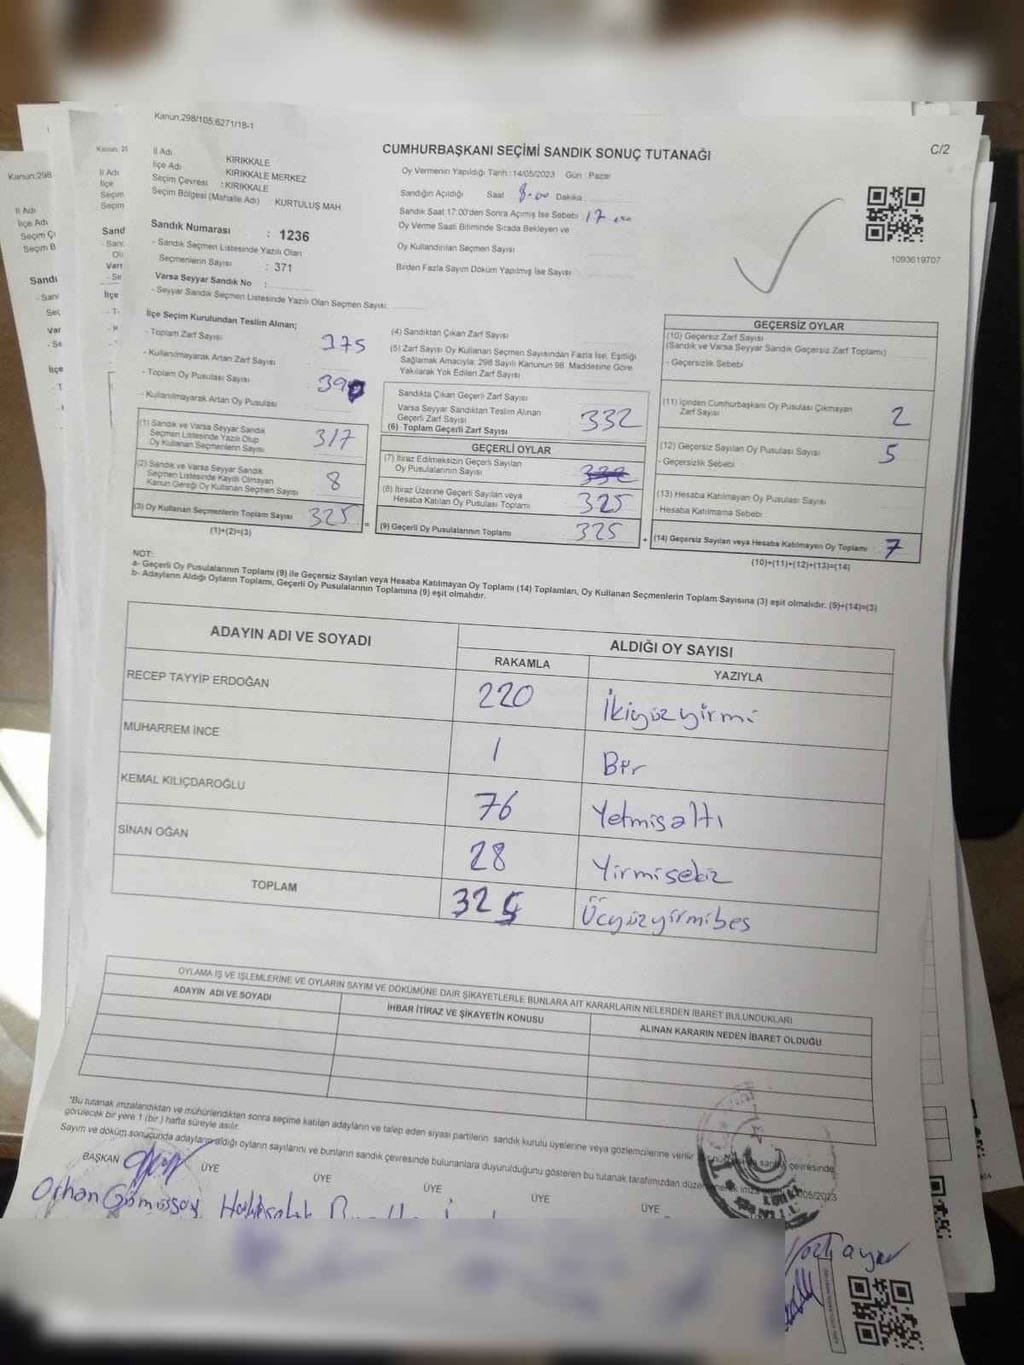 Kanun:298/105;6271/18-1
CUMHURBAŞKANI SEÇİMİ SANDIK SONUÇ TUTANAĞI
C/2
İl Adı KIRIKKALE
İlçe Adı KIRIKKALE MERKEZ
Seçim Çevresi : KIRIKKALE
Seçim Bölgesi (Mahalle Adı) KURTULUŞ MAH.
Oy Vermenin Yapıldığı Tarih :14/05/2023 Gün : Pazar
Sandığın Açıldığı Saat 8.00 Dakika
Sandık Saat 17:00'den Sonra Açılmış İse Sebebi 17
Oy Verme Saati Bitiminde Sırada Bekleyen ve
Oy Kullandırılan Seçmen Sayısı
Birden Fazla Sayım Döküm Yapılmış İse Sayısı
1093619707
Sandık Numarası : 1236
- Sandık Seçmen Listesinde Yazılı Olan
Seçmenlerin Sayısı : 371
Varsa Seyyar Sandık No :
- Seyyar Sandık Seçmen Listesinde Yazılı Olan Seçmen Sayısı
İlçe Seçim Kurulundan Teslim Alınan;
- Toplam Zarf Sayısı 375
- Kullanılmayarak Artan Zarf Sayısı
- Toplam Oy Pusulası Sayısı 390
- Kullanılmayarak Artan Oy Pusulası
(1) Sandık ve Varsa Seyyar Sandık
Seçmen Listesinde Yazılı Olup
Oy Kullanan Seçmenlerin Sayısı 317
(2) Sandık ve Varsa Seyyar Sandık
Seçmen Listesinde Kayıtlı Olmayan
Kanun Gereği Oy Kullanan Seçmen Sayısı 8
(3) Oy Kullanan Seçmenlerin Toplam Sayısı 325 =
(1)+(2)=(3)
(4) Sandıktan Çıkan Zarf Sayısı
(5) Zarf Sayısı Oy Kullanan Seçmen Sayısından Fazla İse, Eşitliği
Sağlamak Amacıyla; 298 Sayılı Kanunun 98. Maddesine Göre
Yakılarak Yok Edilen Zarf Sayısı
Sandıkta Çıkan Geçerli Zarf Sayısı
Varsa Seyyar Sandıktan Teslim Alınan
Geçerli Zarf Sayısı
(6) Toplam Geçerli Zarf Sayısı 332
GEÇERLİ OYLAR
(7) İtiraz Edilmeksizin Geçerli Sayılan
Oy Pusulalarının Sayısı 332
(8) İtiraz Üzerine Geçerli Sayılan veya
Hesaba Katılan Oy Pusulası Toplamı 325
(9) Geçerli Oy Pusulalarının Toplamı 325 +
GEÇERSİZ OYLAR
(10) Geçersiz Zarf Sayısı
(Sandık ve Varsa Seyyar Sandık Geçersiz Zarf Toplamı)
- Geçersizlik Sebebi
(11) İçinden Cumhurbaşkanı Oy Pusulası Çıkmayan
Zarf Sayısı 2
(12) Geçersiz Sayılan Oy Pusulası Sayısı 5
- Geçersizlik Sebebi
(13) Hesaba Katılmayan Oy Pusulası Sayısı
- Hesaba Katılmama Sebebi
(14) Geçersiz Sayılan veya Hesaba Katılmayan Oy Toplamı 7
(10)+(11)+(12)+(13)=(14)
NOT:
a- Geçerli Oy Pusulalarının Toplamı (9) ile Geçersiz Sayılan veya Hesaba Katılmayan Oy Toplamı (14) Toplamları, Oy Kullanan Seçmenlerin Toplam Sayısına (3) eşit olmalıdır. (9)+(14)=(3)
b- Adayların Aldığı Oyların Toplamı, Geçerli Oy Pusulalarının Toplamına (9) eşit olmalıdır.
ADAYIN ADI VE SOYADI ALDIĞI OY SAYISI
RAKAMLA YAZIYLA
RECEP TAYYİP ERDOĞAN 220 İkiyüzyirmi
MUHARREM İNCE 1 Bir
KEMAL KILIÇDAROĞLU 76 Yetmişaltı
SİNAN OĞAN 28 Yirmisekiz
TOPLAM 325 Üçyüzyirmibeş
OYLAMA İŞ VE İŞLEMLERİNE VE OYLARIN SAYIM VE DÖKÜMÜNE DAİR ŞİKAYETLERLE BUNLARA AİT KARARLARIN NELERDEN İBARET BULUNDUKLARI
ADAYIN ADI VE SOYADI İHBAR İTİRAZ VE ŞİKAYETİN KONUSU ALINAN KARARIN NEDEN İBARET OLDUĞU
*Bu tutanak imzalandıktan ve mühürlendikten sonra seçime katılan adayların ve talep eden siyasi partilerin sandık kurulu üyelerine veya gözlemcilerine verilir
görülecek bir yere 1 (bir) hafta süreyle asılır.
Sayım ve döküm sonucunda adayların aldığı oyların sayılarını ve bunların sandık çevresinde bulunanlara duyurulduğunu gösteren bu tutanak tarafımızdan
BAŞKAN ÜYE ÜYE ÜYE ÜYE ÜYE
Orhan